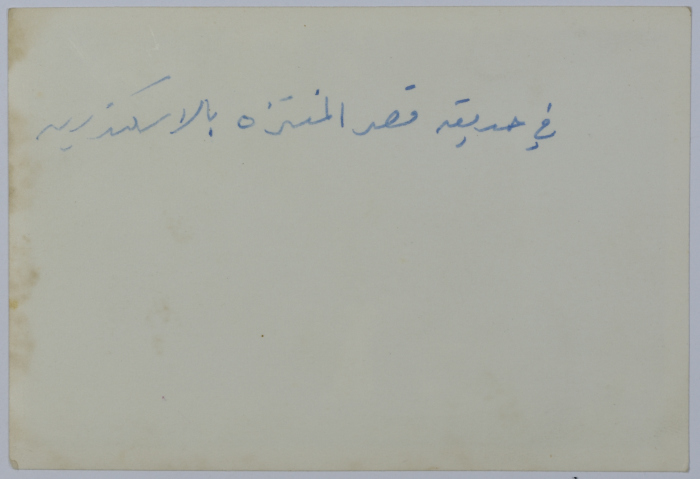 في حديقة قصر المنتزه بالاسكندرية